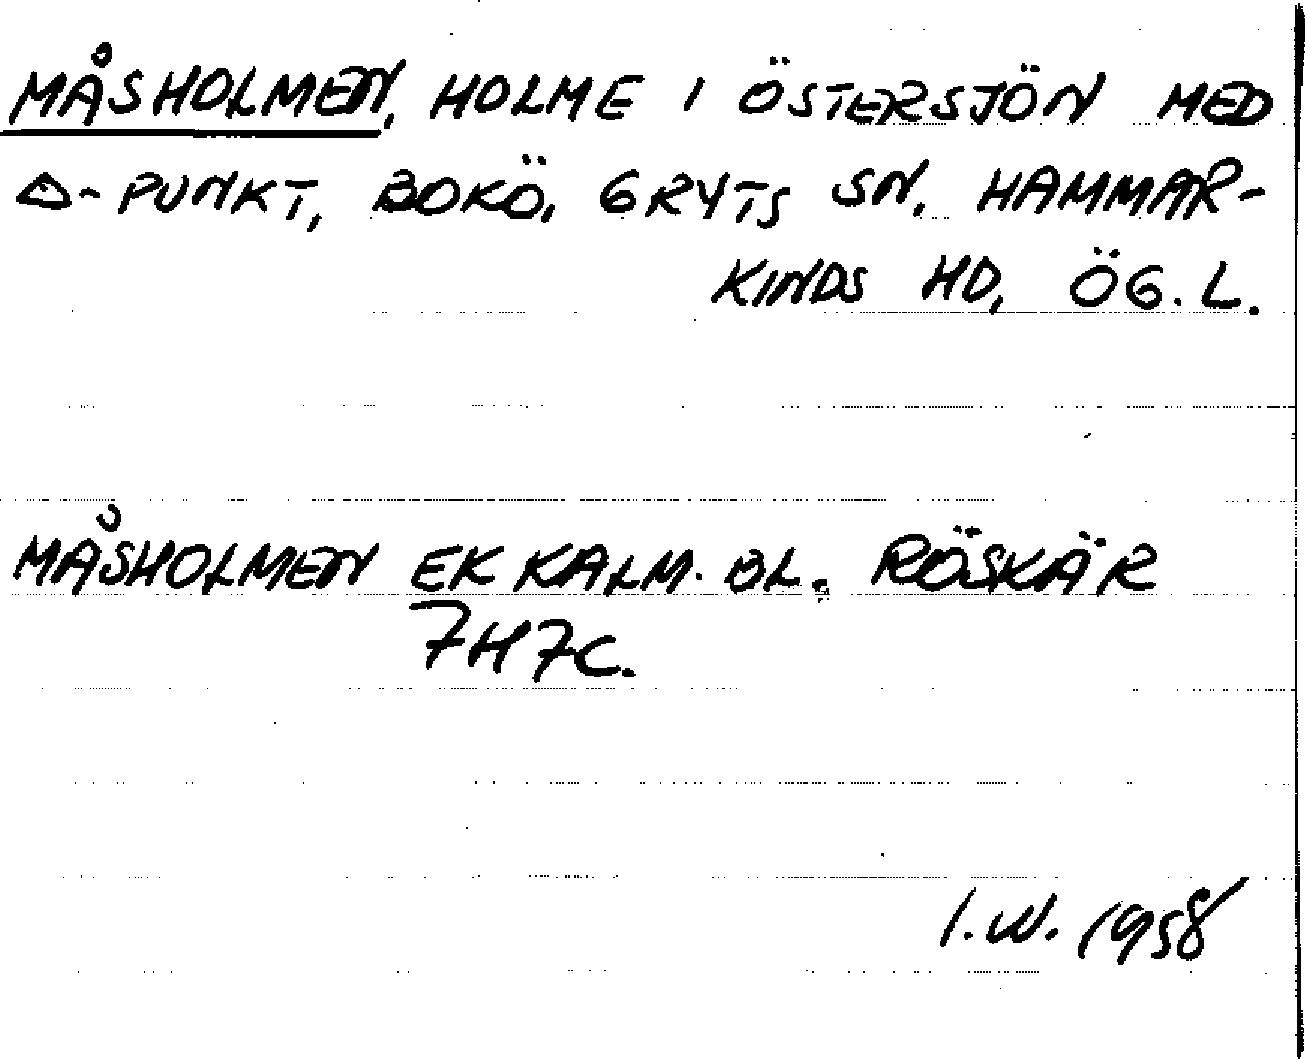 MÅSHOLMEN, HOLME I ÖSTERSJÖN MED
△-PUNKT, BOKÖ, GRYTS SN, HAMMAR-
KINDS HD, ÖG. L.
MÅSHOLMEN EK KALM. BL. RÖSKÄR
7H7C.
I.W. 1958